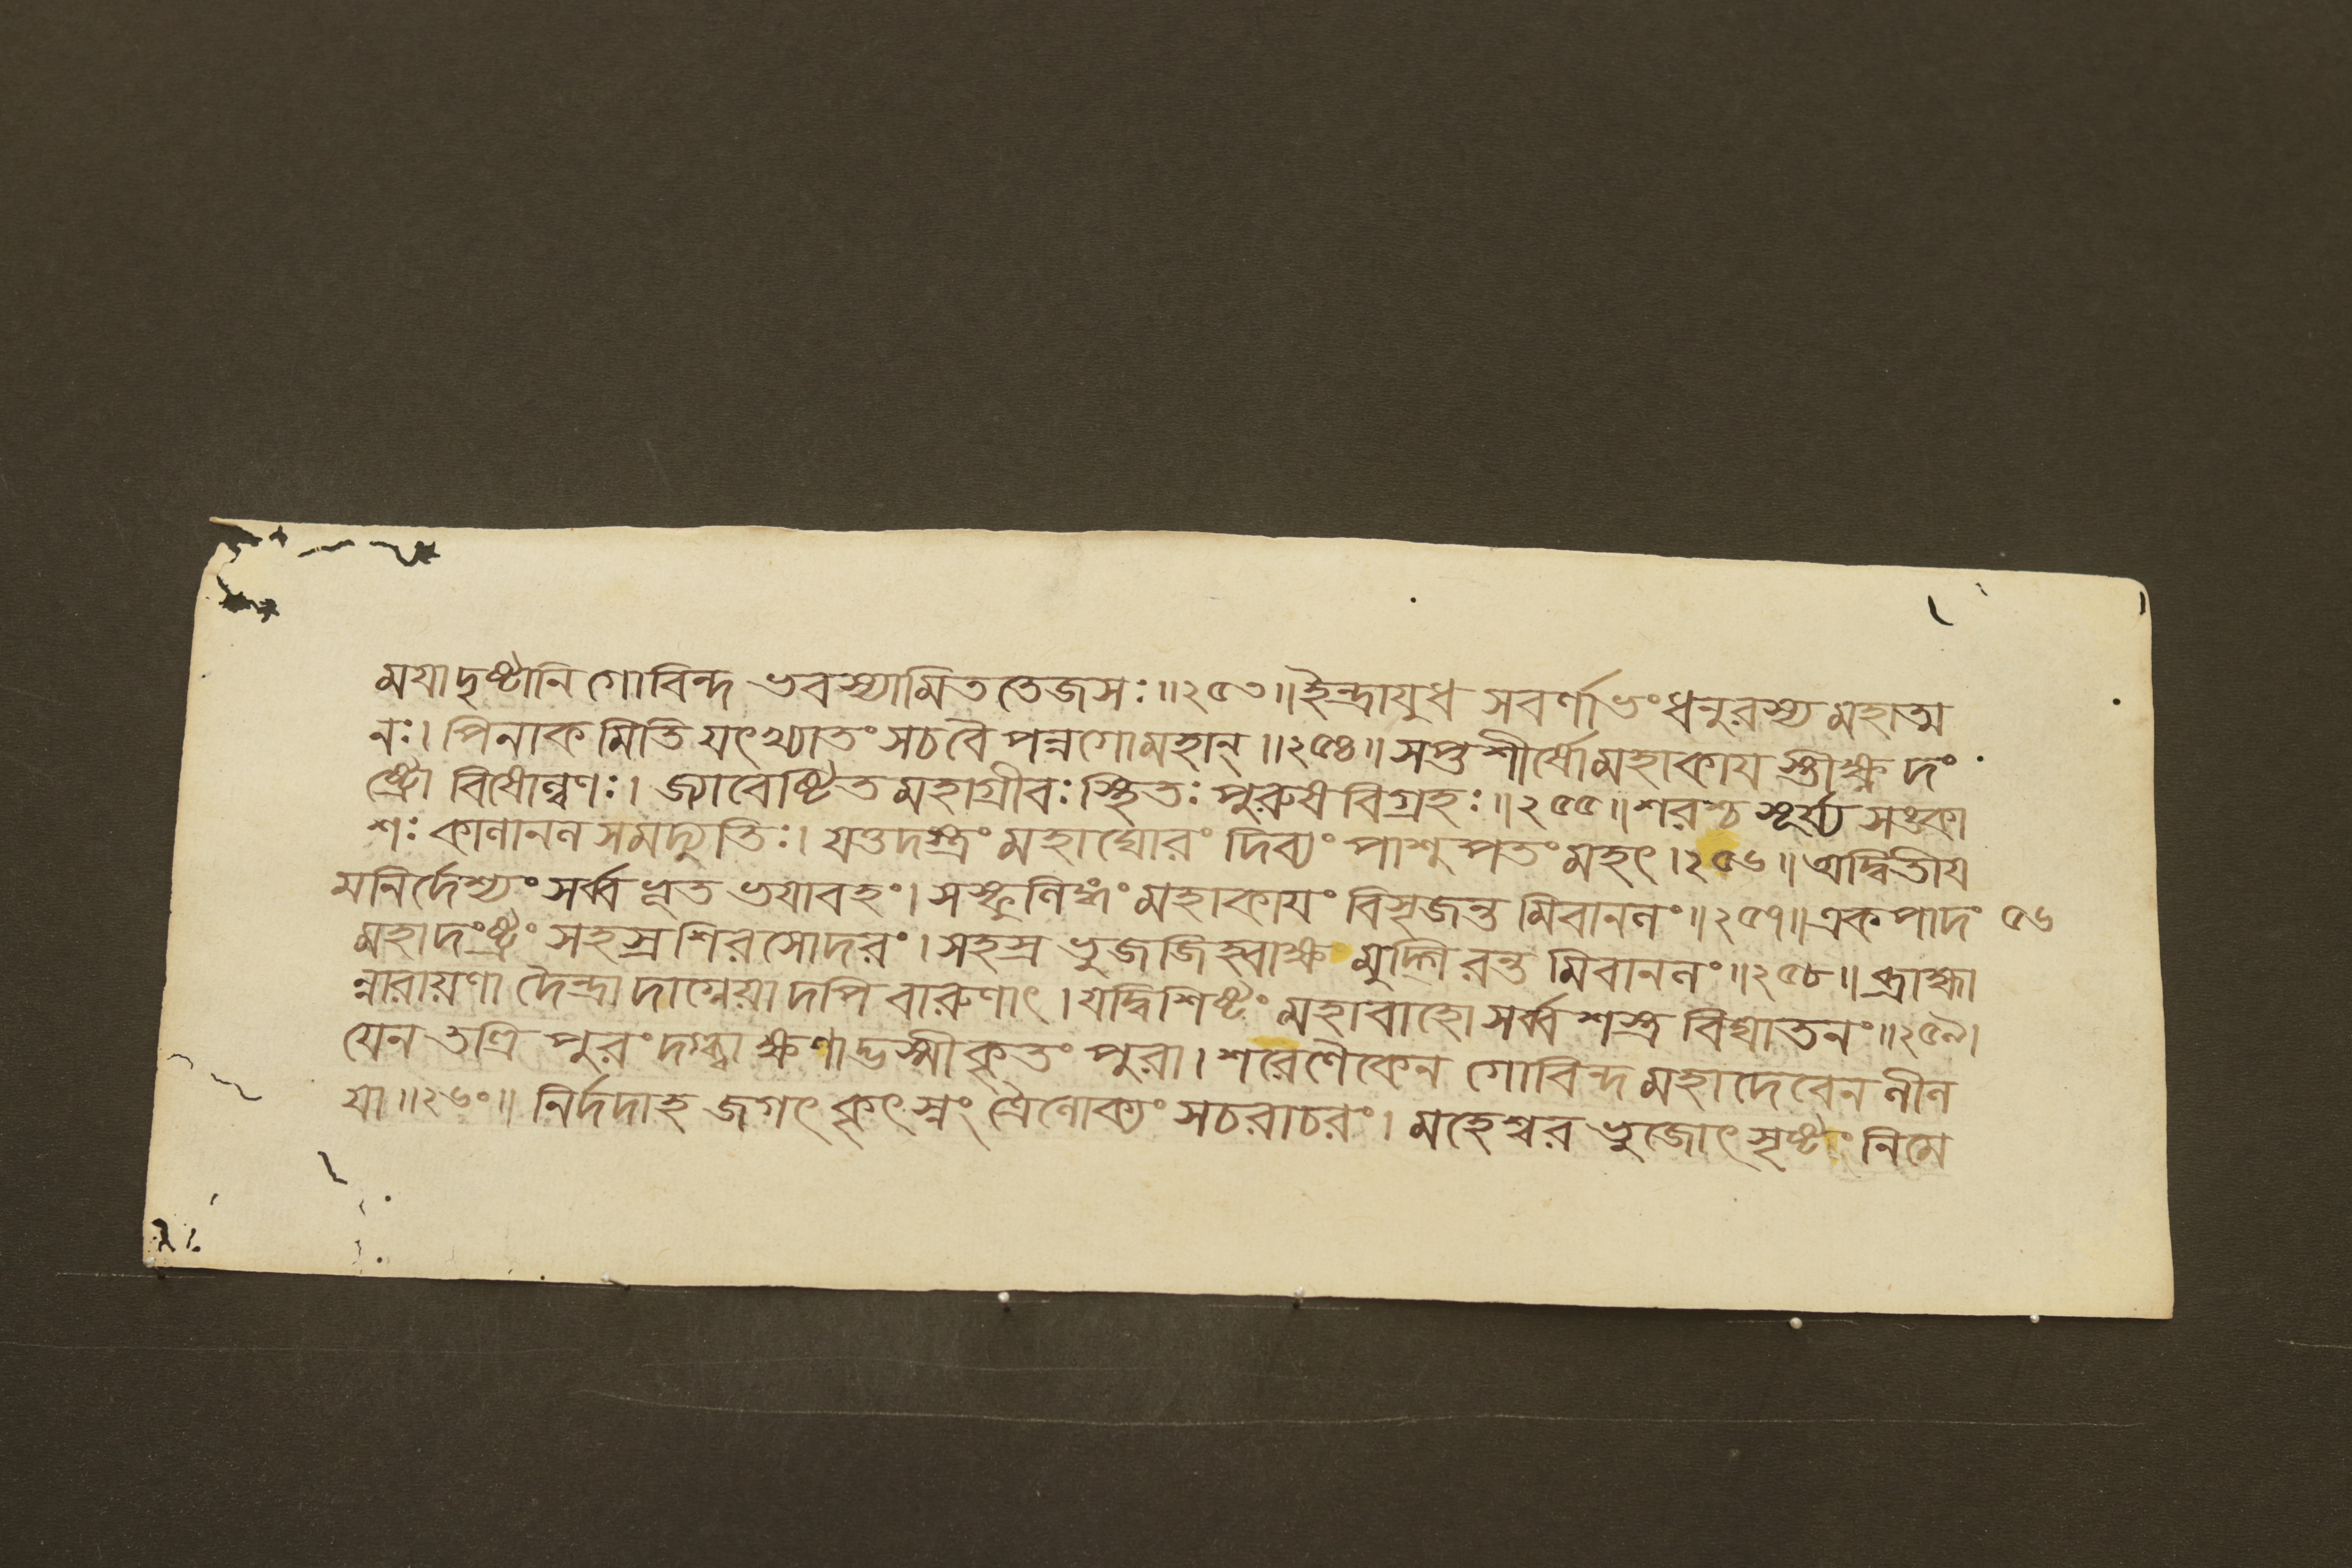 ময়াদৃষ্টানি গোবিন্দ ভবস্যামিত তেজসঃ॥২৫৩॥ইন্দ্রাযুধ সবর্ণাভং ধনুরস্য মহাত্ম
নঃ। পিনাক মিতি যৎখ্যাতং সচবৈ পন্নগোমহান্॥২৫৪॥ সপ্তশীর্ষোমহাকায স্তীক্ষ্ণ দং
ষ্ট্রো বিষোল্বণঃ। জ্যাবেষ্টিত মহাগ্রীবঃ স্থিতঃ পুরুষ বিগ্রহঃ॥২৫৫॥শরশ্চ সূর্য্য সঙ্কা
শঃ কালানল সমদ্যুতিঃ। যত্তদস্ত্রং মহাঘোরং দিব্যং পাশুপতং মহৎ।২৫৬॥ অদ্বিতীয
মনির্দেশ্যং সর্ব্ব ভূত ভযাবহং। সস্ফুলিঙ্গং মহাকাযং বিসৃজন্ত মিবানলং॥২৫৭॥একপাদং ৫৬
মহাদংষ্ট্রং সহস্র শিরসোদরং। সহস্র ভুজজিহ্বাক্ষ মুদ্গিরন্ত মিবানলং॥২৫৮॥ ব্রাহ্মা
ন্নারায়ণা দৈন্দ্রা দাগ্নেয়া দপি বারুণাৎ। যদ্বিশিষ্টং মহাবাহো সর্ব্ব শস্ত্র বিঘাতনং॥২৫৯।
যেন তত্রি পুরং দগ্ধ্বা ক্ষণাদ্ভস্মীকৃতং পুরা। শরেণৈকেন গোবিন্দ মহাদেবেন লীল
যা॥২৬০॥ নির্দদাহ জগৎ কৃৎস্নং ত্রৈলোক্যং সচরাচরং। মহেশ্বর ভুজোৎসৃষ্টং নিমে